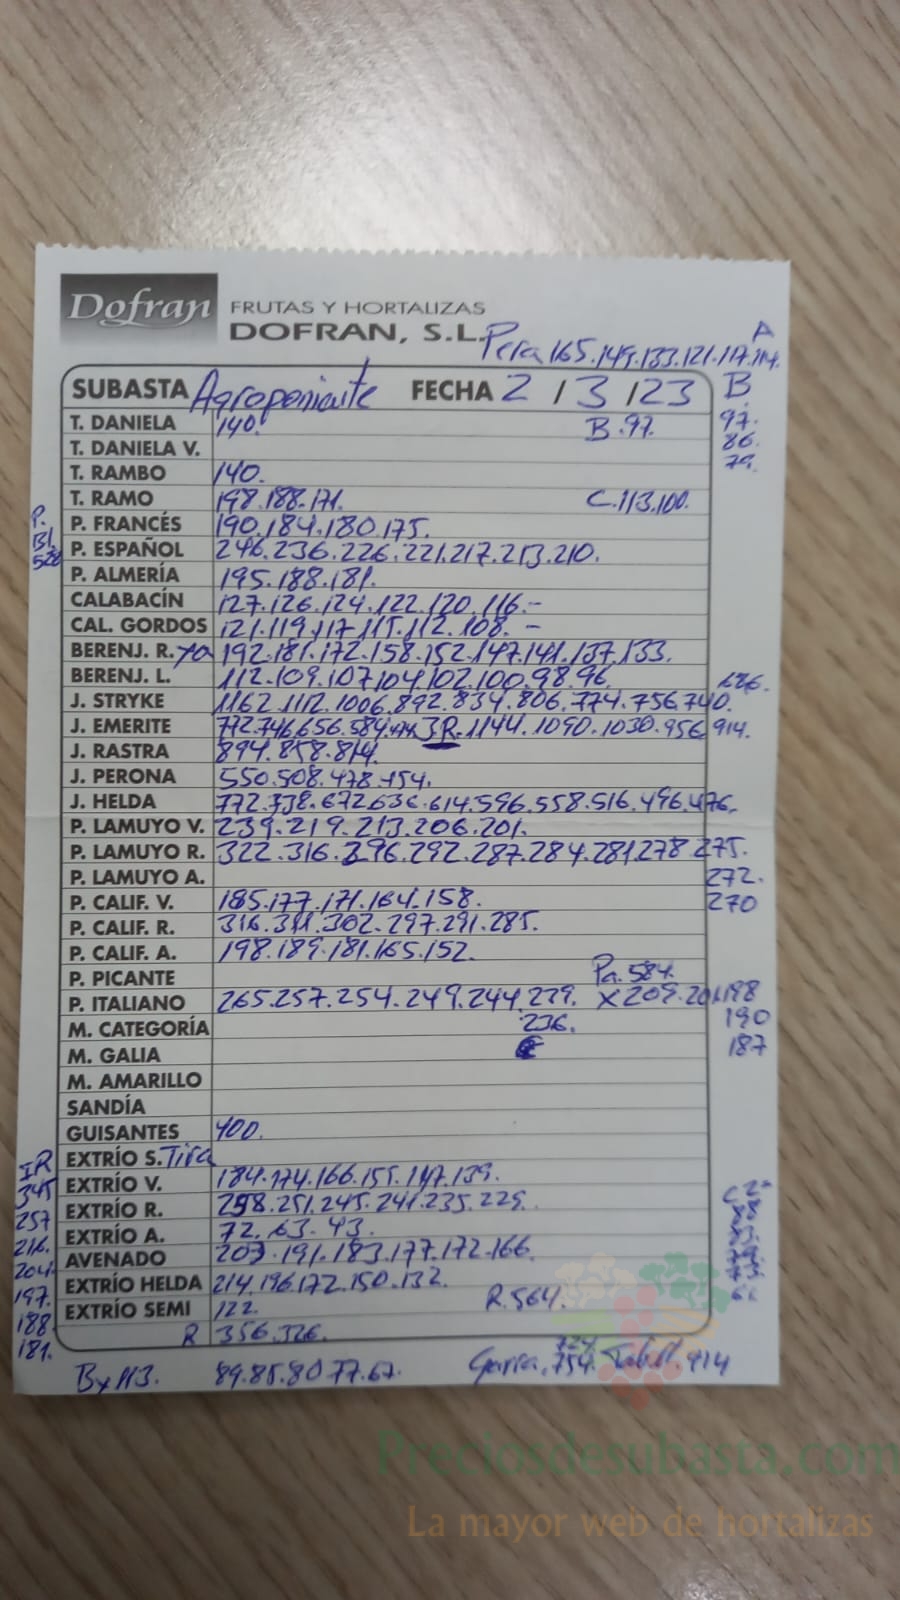 Dofran FRUTAS Y HORTALIZAS
DOFRAN, S.L. Pera 165.149.133.121.117.114.
A
SUBASTA Agroponiente FECHA 2/3/23 B
T. DANIELA 140. B.97. 97.
T. DANIELA V. 86.
T. RAMBO 140. 79.
T. RAMO 198.188.171. C.113.100.
P.
P. FRANCÉS 190.184.180.175.
Bl.
P. ESPAÑOL 246.236.226.221.217.213.210.
528
P. ALMERÍA 195.188.181.
CALABACÍN 127.126.124.122.120.116.-
CAL. GORDOS 121.119.117.115.112.108.-
BERENJ. R. 192.181.172.158.152.147.141.137.133.
BERENJ. L. 112.109.107.104.102.100.98.96.
J. STRYKE 1162.1112.1006.892.834.806.774.756.740.
J. EMERITE 772.746.656.584. JR.1144.1090.1030.956.914.
J. RASTRA 894.858.814.
J. PERONA 550.508.478.454.
J. HELDA 772.738.672.636.614.596.558.516.496.476.
P. LAMUYO V. 239.219.213.206.201.
P. LAMUYO R. 322.316.296.292.287.284.281.278.275.
P. LAMUYO A. 272.
P. CALIF. V. 185.177.171.164.158. 270
P. CALIF. R. 316.311.302.297.291.285.
P. CALIF. A. 198.189.181.165.152.
P. PICANTE Pa.584.
P. ITALIANO 265.257.254.249.244.239. X209.201.198
M. CATEGORÍA 236. 190
M. GALIA 187
M. AMARILLO
SANDÍA
GUISANTES 400.
EXTRÍO S. Tira
IR
EXTRÍO V. 184.174.166.155.147.139.
345
EXTRÍO R. 258.251.245.241.235.229.
257
EXTRÍO A. 72.63.43.
216.
AVENADO 203.191.183.177.172.166.
204.
EXTRÍO HELDA 214.196.172.150.132.
197.
EXTRÍO SEMI 122. R.564.
188.
R 356.326.
181.
Bx113. 89.85.80.77.67. Garra.754. 914
724.
Preciosdesubasta.com
La mayor web de hortalizas